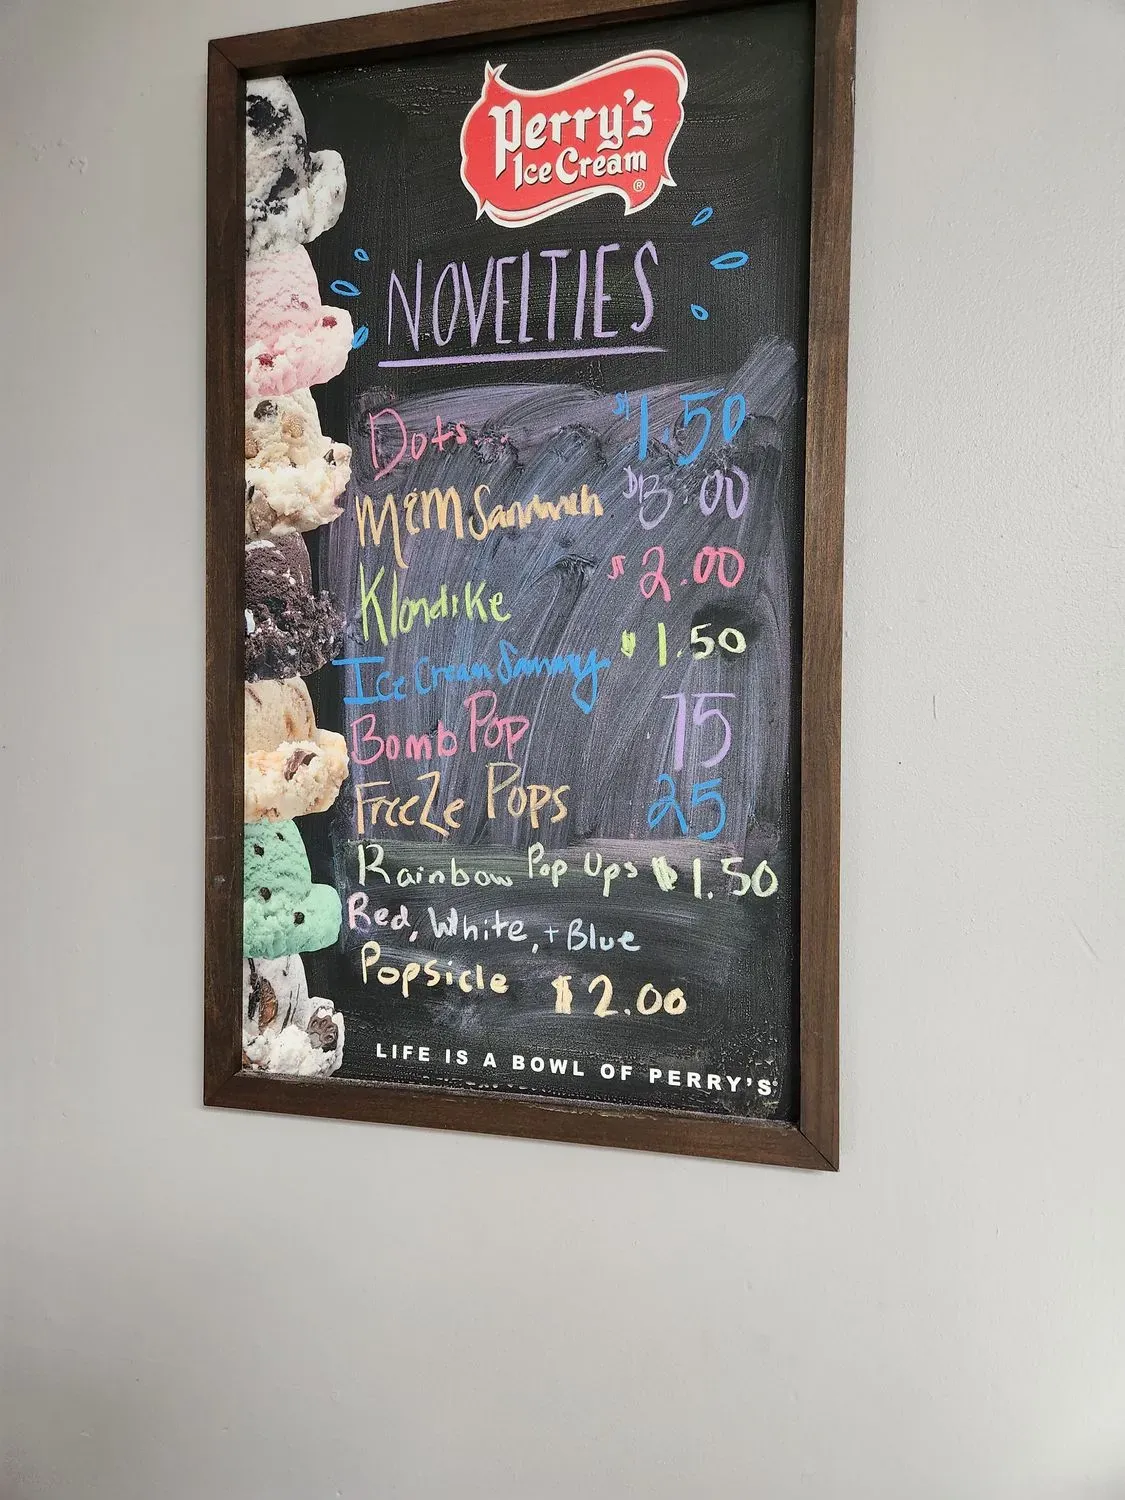 Perry's
Ice Cream
®
NOVELTIES
Dots... $1.50
M&M Sandwich $3.00
Klondike $2.00
Ice Cream Sammy $1.50
Bomb Pop 75
FreeZe Pops 25
Rainbow Pop Ups $1.50
Red, White, + Blue
Popsicle $2.00
LIFE IS A BOWL OF PERRY'S®